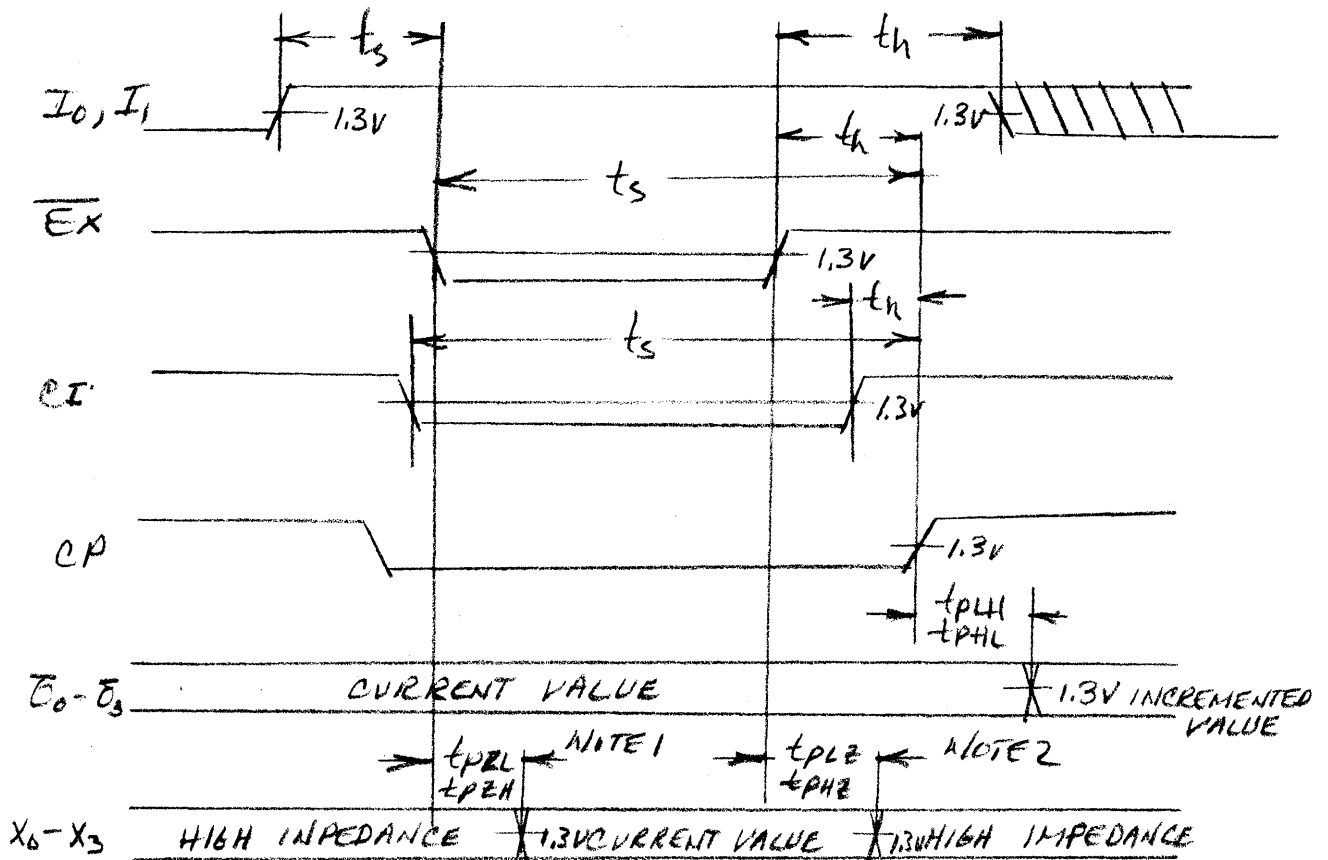 ts
th
I0, I1
1.3V
1.3V
th
ts
EX
1.3V
th
ts
CI
1.3V
CP
1.3V
tPLH
tPHL
O̅0-O̅3
CURRENT VALUE
1.3V INCREMENTED
VALUE
tPZL
tPZH
NOTE 1
tPLZ
tPHZ
NOTE 2
X0-X3
HIGH INPEDANCE
1.3V CURRENT VALUE
1.3V HIGH IMPEDANCE